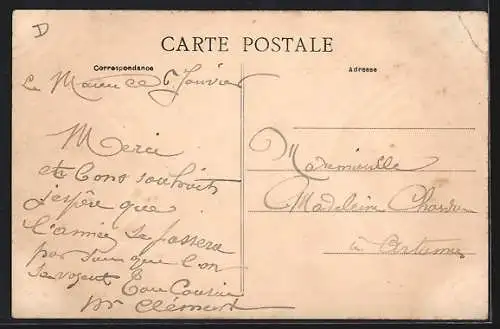 D
CARTE POSTALE
Correspondance
Adresse
Le 6 Janvier
Merci
et bons souhaits
j'espère que
l'année se passera
pas sans que l'on
se voyent Ton Cousin
Clément
Mademoiselle
Madeleine
à